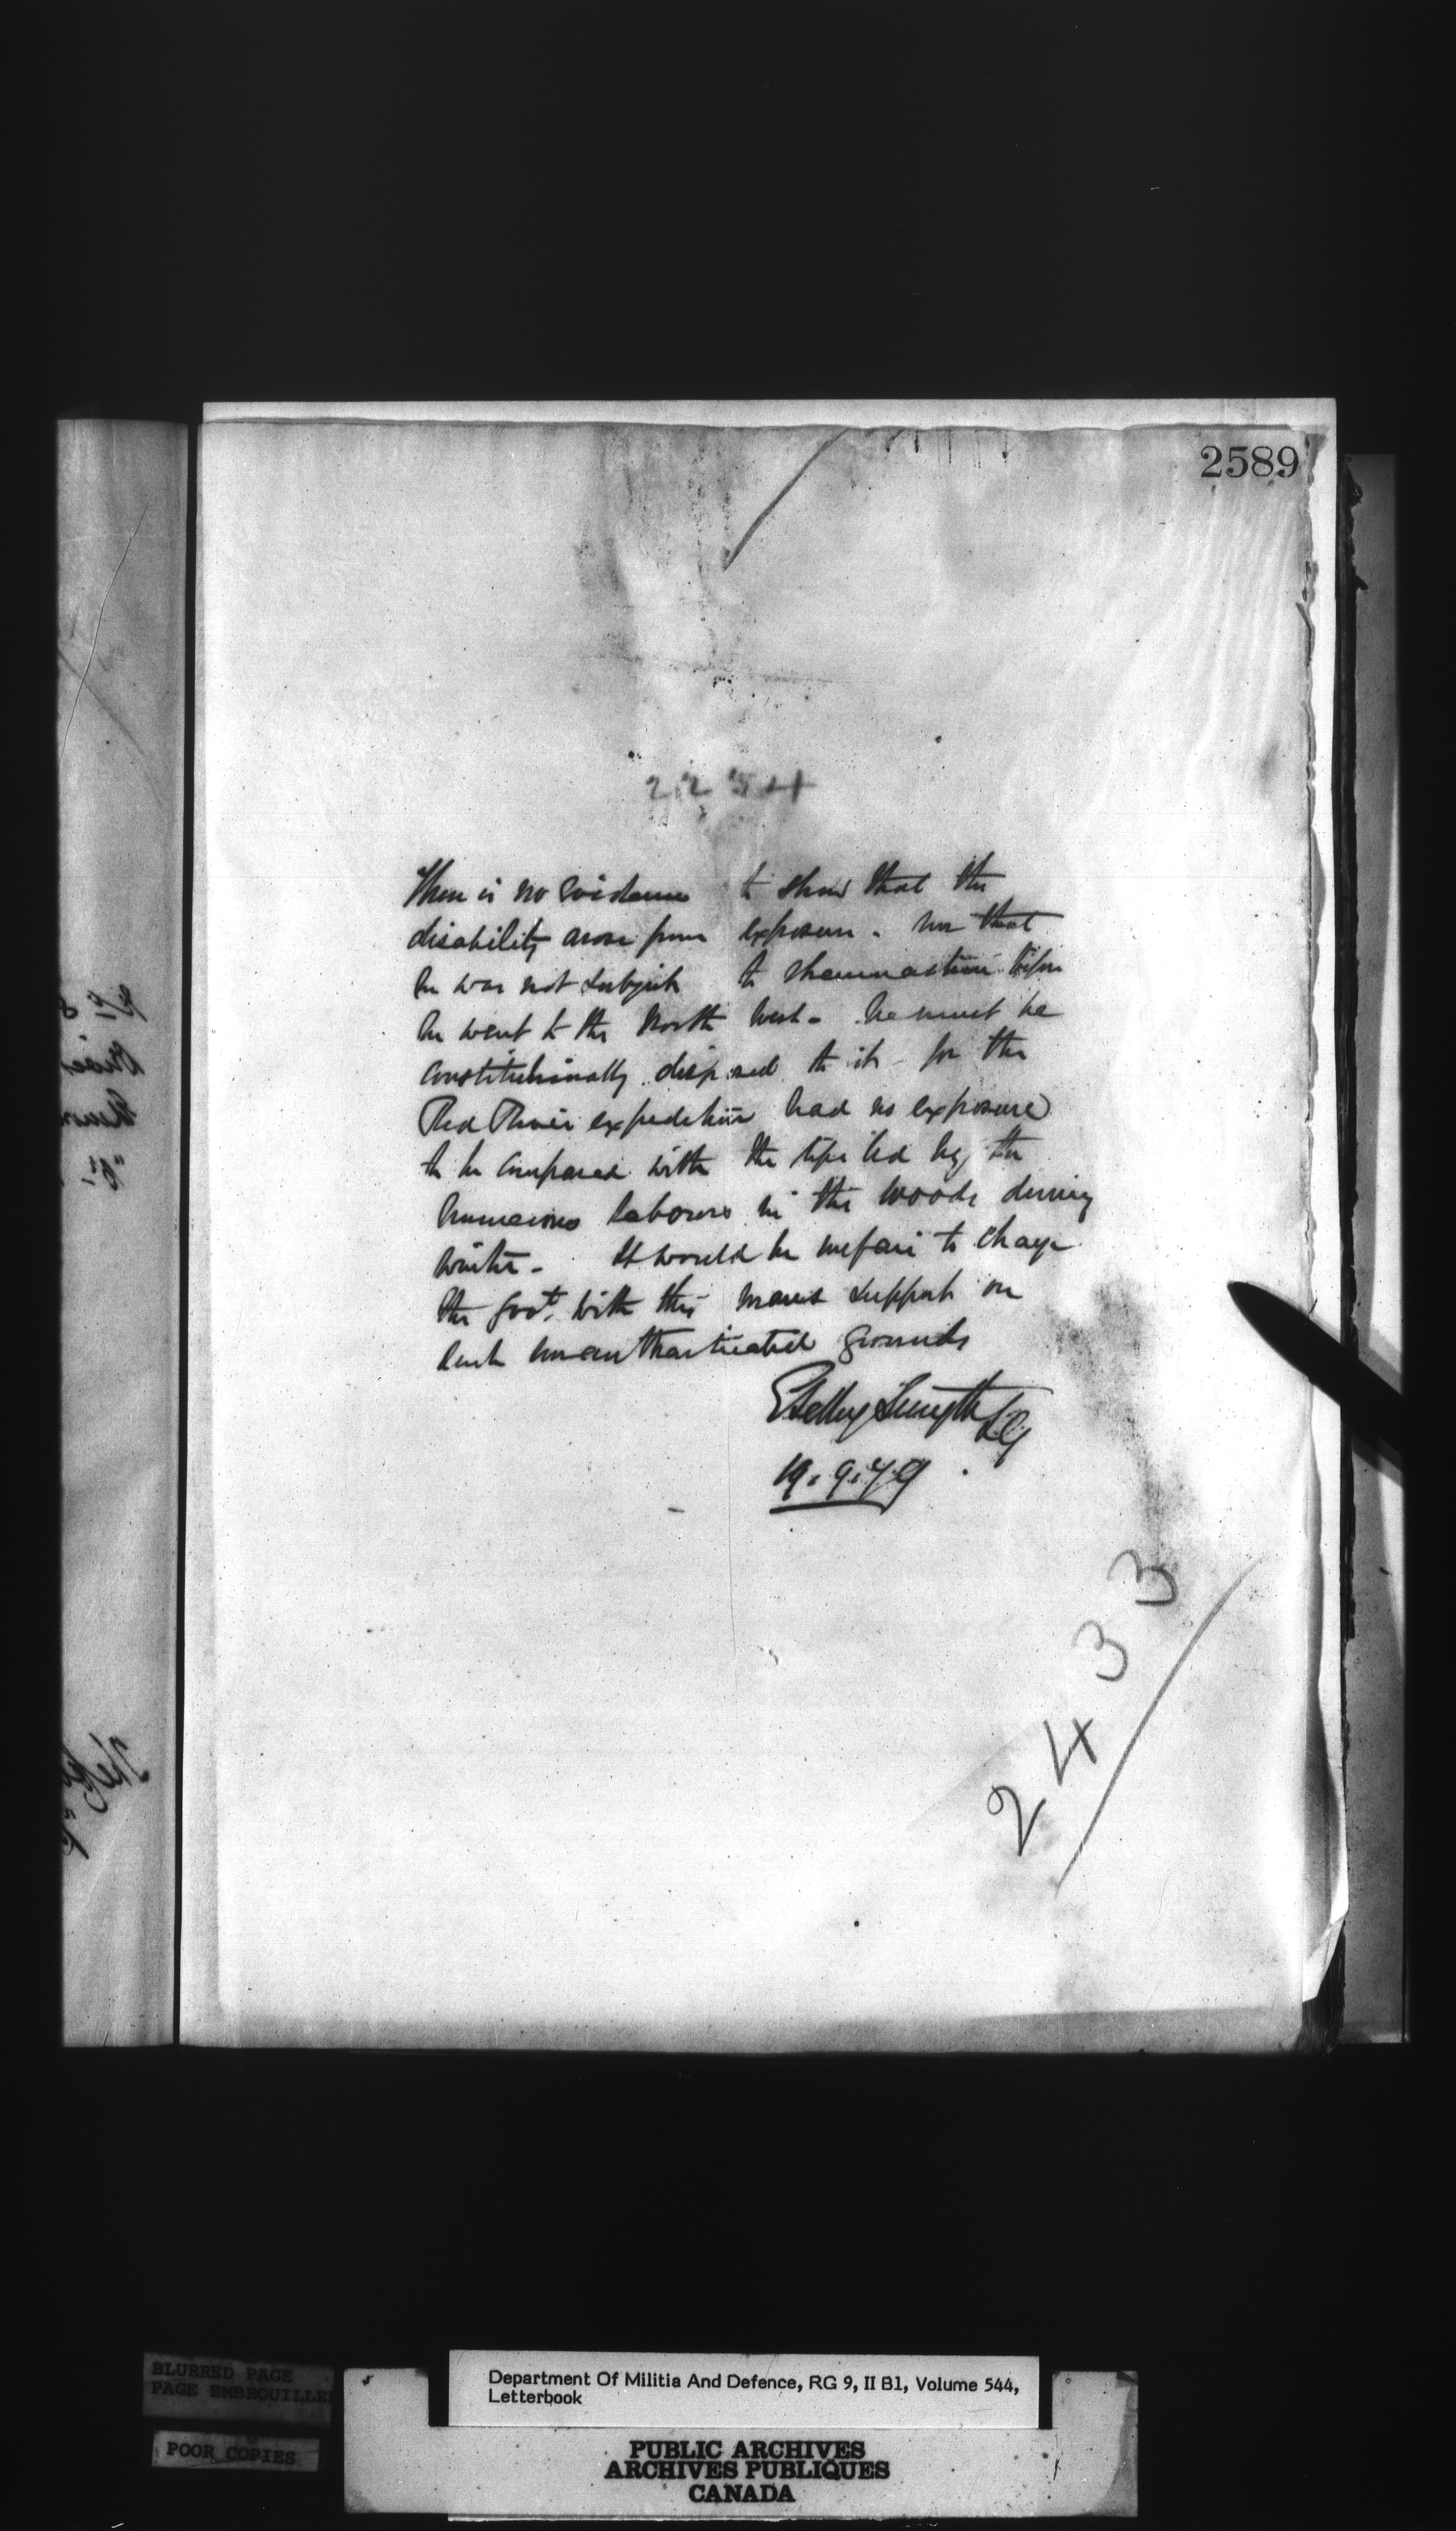 2589
2254
There is no evidence to show that the
disability arose from exposure. nor that
he was not subject to rheumatism before
he went to the North West - he must be
constitutionally disposed to it - for the
Red River expedition had no exposure
to be compared with the life led by the
numerous laborers in the woods during
winter - It would be unfair to charge
the Govt. with this man's support on
such unauthenticated grounds
ESelby Smyth LG
19.9.79
2433
BLURRED PAGE
PAGE EMBROUILLE
POOR COPIES
Department Of Militia And Defence, RG 9, II B1, Volume 544,
Letterbook
PUBLIC ARCHIVES
ARCHIVES PUBLIQUES
CANADA